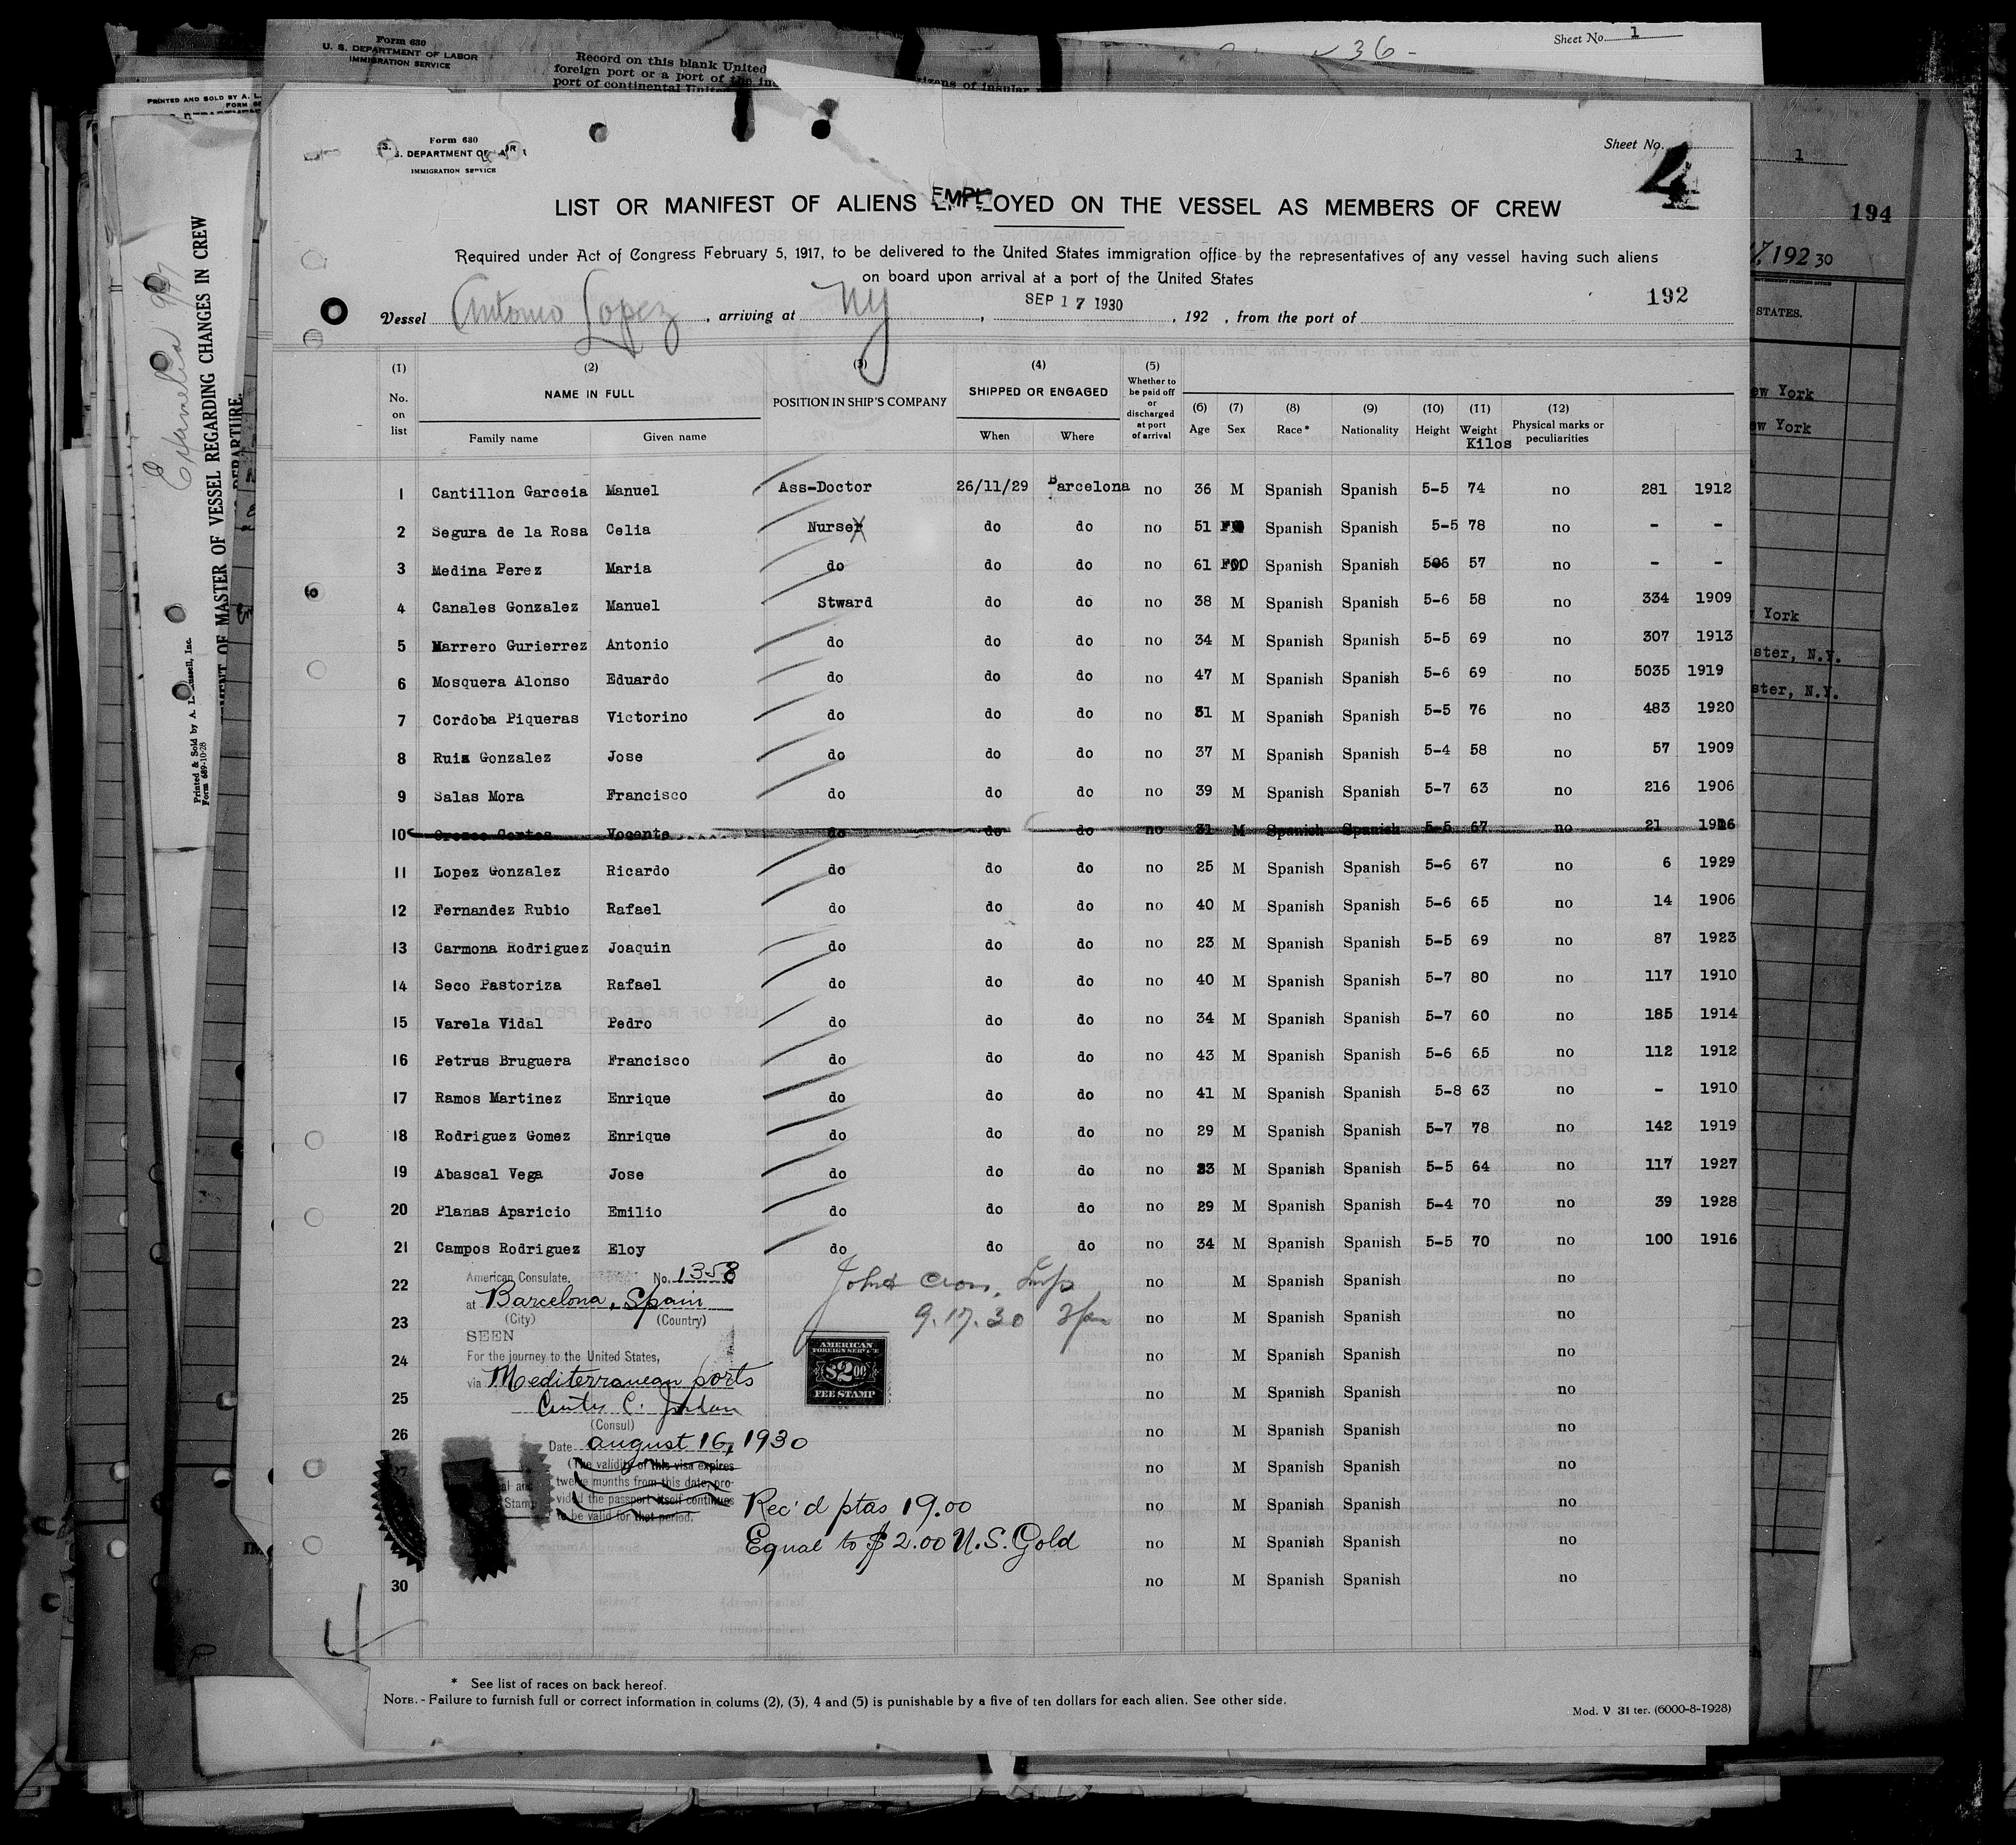 Form 630
U. S. DEPARTMENT OF LABOR
IMMIGRATION SERVICE
Record on this blank United
foreign port or a port of the
port of continental
citizens of insular
36 -
Sheet No. 1
PRINTED AND SOLD BY A. L.
1
194
192 30
STATES.
ew York
ew York
York
ster, N.Y.
ster, N.Y.
MENT OF MASTER OF VESSEL REGARDING CHANGES IN CREW
DEPARTURE.
Printed & Sold by A. L. Russell, Inc.
Form 689-10-28
Form 680
S. DEPARTMENT OF
IMMIGRATION SERVICE
Sheet No. 4
LIST OR MANIFEST OF ALIENS EMPLOYED ON THE VESSEL AS MEMBERS OF CREW
Required under Act of Congress February 5, 1917, to be delivered to the United States immigration office by the representatives of any vessel having such aliens
on board upon arrival at a port of the United States
192
Vessel Antonio Lopez, arriving at NY, SEP 17 1930, 192 , from the port of
(1) (2) (3) (4) (5)
No. on list NAME IN FULL POSITION IN SHIP'S COMPANY SHIPPED OR ENGAGED Whether to be paid off or discharged at port of arrival (6) Age (7) Sex (8) Race * (9) Nationality (10) Height (11) Weight Kilos (12) Physical marks or peculiarities
Family name Given name When Where
1 Cantillon Garceia Manuel Ass-Doctor 26/11/29 Barcelona no 36 M Spanish Spanish 5-5 74 no 281 1912
2 Segura de la Rosa Celia Nurse do do no 51 F Spanish Spanish 5-5 78 no - -
3 Medina Perez Maria do do do no 61 F Spanish Spanish 506 57 no - -
4 Canales Gonzalez Manuel Stward do do no 38 M Spanish Spanish 5-6 58 no 334 1909
5 Marrero Gurierrez Antonio do do do no 34 M Spanish Spanish 5-5 69 no 307 1913
6 Mosquera Alonso Eduardo do do do no 47 M Spanish Spanish 5-6 69 no 5035 1919
7 Cordoba Piqueras Victorino do do do no 31 M Spanish Spanish 5-5 76 no 483 1920
8 Ruiz Gonzalez Jose do do do no 37 M Spanish Spanish 5-4 58 no 57 1909
9 Salas Mora Francisco do do do no 39 M Spanish Spanish 5-7 63 no 216 1906
10 Orozco Cortes Vocente do do do no 31 M Spanish Spanish 5-5 67 no 21 1916
11 Lopez Gonzalez Ricardo do do do no 25 M Spanish Spanish 5-6 67 no 6 1929
12 Fernandez Rubio Rafael do do do no 40 M Spanish Spanish 5-6 65 no 14 1906
13 Carmona Rodriguez Joaquin do do do no 23 M Spanish Spanish 5-5 69 no 87 1923
14 Seco Pastoriza Rafael do do do no 40 M Spanish Spanish 5-7 80 no 117 1910
15 Varela Vidal Pedro do do do no 34 M Spanish Spanish 5-7 60 no 185 1914
16 Petrus Bruguera Francisco do do do no 43 M Spanish Spanish 5-6 65 no 112 1912
17 Ramos Martinez Enrique do do do no 41 M Spanish Spanish 5-8 63 no - 1910
18 Rodriguez Gomez Enrique do do do no 29 M Spanish Spanish 5-7 78 no 142 1919
19 Abascal Vega Jose do do do no 23 M Spanish Spanish 5-5 64 no 117 1927
20 Planas Aparicio Emilio do do do no 29 M Spanish Spanish 5-4 70 no 39 1928
21 Campos Rodriguez Eloy do do do no 34 M Spanish Spanish 5-5 70 no 100 1916
22 no M Spanish Spanish no
23 no M Spanish Spanish no
24 no M Spanish Spanish no
25 no M Spanish Spanish no
26 no M Spanish Spanish no
27 no M Spanish Spanish no
no M Spanish Spanish no
no M Spanish Spanish no
30 no M Spanish Spanish no
American Consulate, No. 1358
at Barcelona, Spain
(City) (Country)
SEEN
For the journey to the United States,
via Mediterranean ports
Curtis C. Jordan
(Consul)
Date august 16, 1930
(The validity of this visa expires
twelve months from this date, pro-
vided the passport itself continues
to be valid for that period.
Stamp
9.17.30
AMERICAN
FOREIGN SERVICE
$2.00
FEE STAMP
Rec'd ptas 19.00
Equal to $2.00 U.S. Gold
4
* See list of races on back hereof.
NOTE. - Failure to furnish full or correct information in colums (2), (3), 4 and (5) is punishable by a five of ten dollars for each alien. See other side.
Mod. V 31 ter. (6000-8-1928)